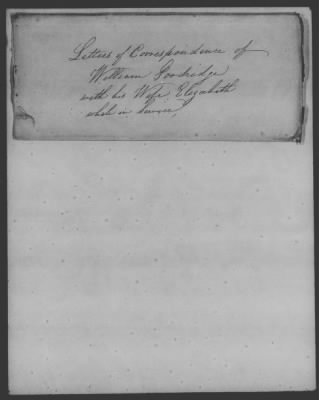 Letters of Correspondence of
William Goodridge
with his Wife Elizabeth
while in service,